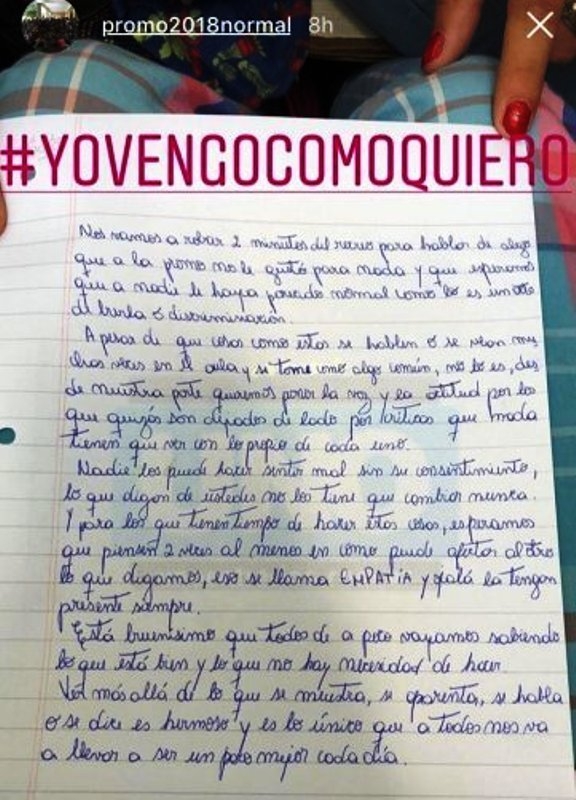 promo2018normal 8h
#YOVENGOCOMOQUIERO
Nos vamos a robar 2 minutos del recreo para hablar de algo
que a la promo no le gustó para nada y que esperamos
que a nadie le haya parecido normal como lo es un acto
de burla o discriminación.
A pesar de que cosas como estas se hablen o se vean mu
chas veces en el aula y se tome como algo común, no lo es, des
de nuestra parte queremos poner la voz y la actitud por los
que quizás son dejados de lado por críticas que nada
tienen que ver con lo propio de cada uno.
Nadie los puede hacer sentir mal sin su consentimiento,
lo que digan de ustedes no los tiene que cambiar nunca.
Y para los que tienen tiempo de hacer estas cosas, esperamos
que piensen 2 veces al menos en como puede afectar al otro
lo que digamos, eso se llama EMPATÍA y ojalá la tengan
presente siempre.
Está buenísimo que todos de a poco vayamos sabiendo
lo que está bien y lo que no hay necesidad de hacer.
Ver más allá de lo que se muestra, se aparenta, se habla
o se dice es hermoso y es lo único que a todos nos va
a llevar a ser un poco mejor cada día.